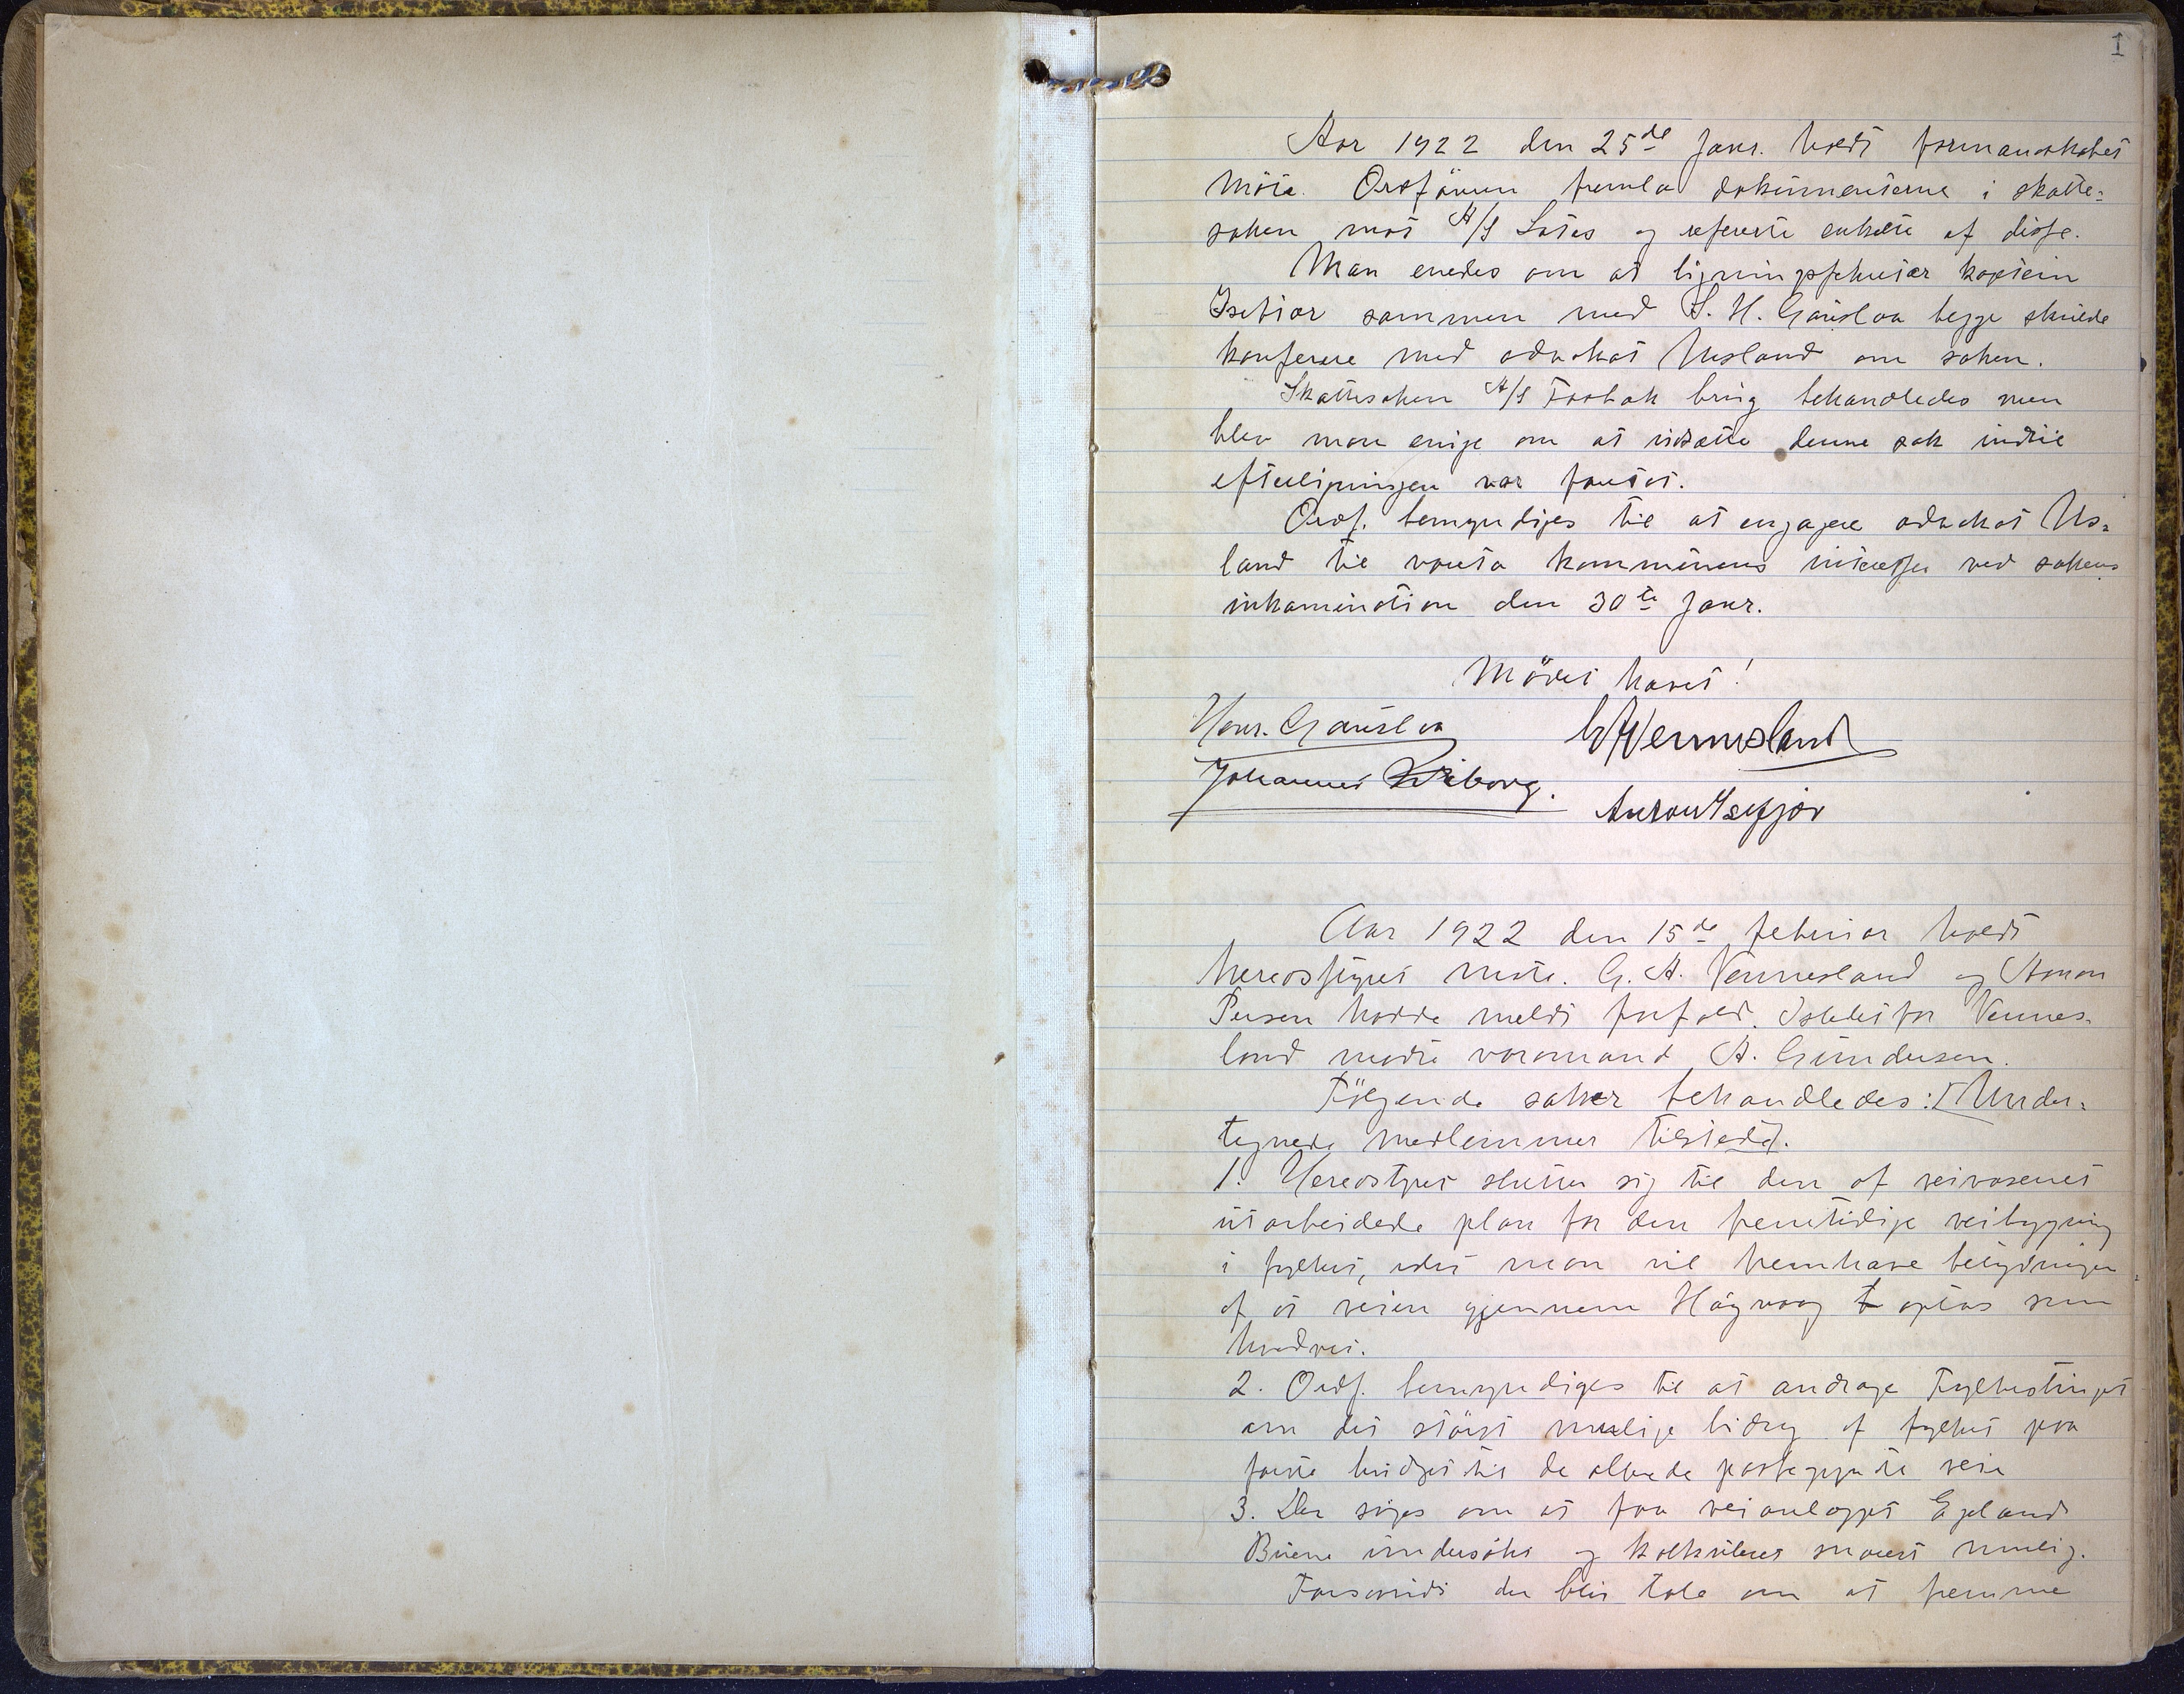 1
Aar 1922 den 25de Janr. holdt formandskabet
möte. Ordföreren fremla dokumenterne i skatte-
saken mot A/S Lotes og refererte enkelte af disse.
Man enedes om at ligningssekretær kaptein
Isefiær sammen med S. H. Gauslaa begge skulde
konferere med advokat Usland om saken.
Skattesaken A/S Frobak brug behandledes men
blev man enige om at utsætte denne sak indtil
efterligningen var foretat.
Ordf. bemyndiges til at engagere advokat Us-
land til vareta kommunens interesser ved sakens
inkamination den 30te Janr.
Mödet hævet!
Hans. Gauslaa
G A Vennesland
Johannes Wiborg.
Anton Isefjær
Aar 1922 den 15de februar holdt
heredsstyret möte. G. A. Vennesland og Aanon
Persen hadde meldt forfald. Istedetfor Vennes-
land mödte varamand A. Gundersen.
Fölgende saker behandledes: [Under-
tegnede medlemmer tilstede].
1. Heredstyret slutter sig til den af veivæsenet
utarbeidede plan for den fremtidige veibygning
i fylket, idet man vil fremhæve betydningen
af at veien gjennem Hägvaag t optas som
hovedvei.
2. Ordf. bemyndiges til at andrage Fylkestinget
om det störst mulige bidrag af fylket paa
förste budget til de allerede paabegynte veie
3. Der söges om at faa veianlægget Egeland
Buene undersökt og kalkuleret snarest mulig.
Forsaavidt der blir tale om at fremme